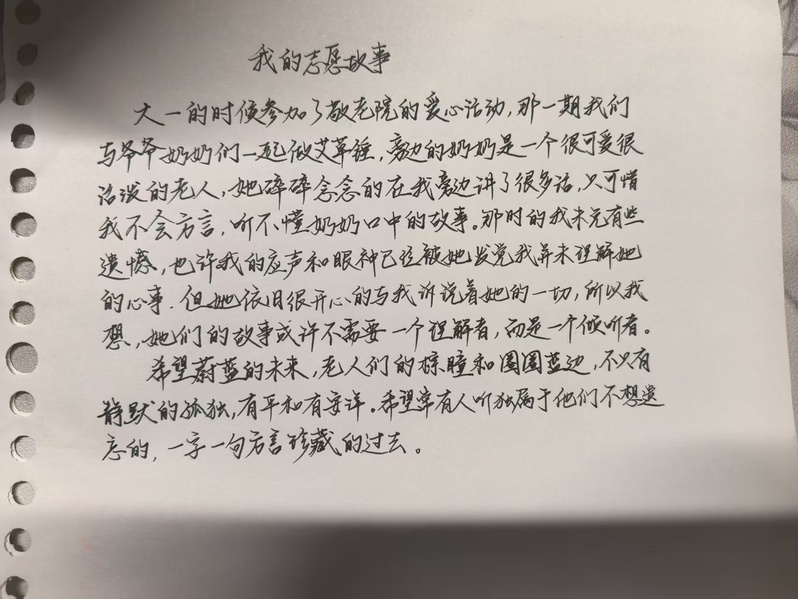 我的志愿故事
大一的时候参加了敬老院的爱心活动,那一期我们
与爷爷奶奶们一起做艾草锤,旁边的奶奶是一个很可爱很
活泼的老人,她碎碎念念的在我旁边讲了很多话,只可惜
我不会方言,听不懂奶奶口中的故事。那时的我未免有些
遗憾,也许我的应声和眼神已经被她发觉我并未理解她
的心事.但她依旧很开心的与我诉说着她的一切,所以我
想,她们的故事或许不需要一个理解者,而是一个倾听者。
希望蔚蓝的未来,老人们的棕瞳和圈圈蓝边,不只有
静默的孤独,有平和有安详。希望常有人听独属于他们不想遗
忘的,一字一句方言珍藏的过去。